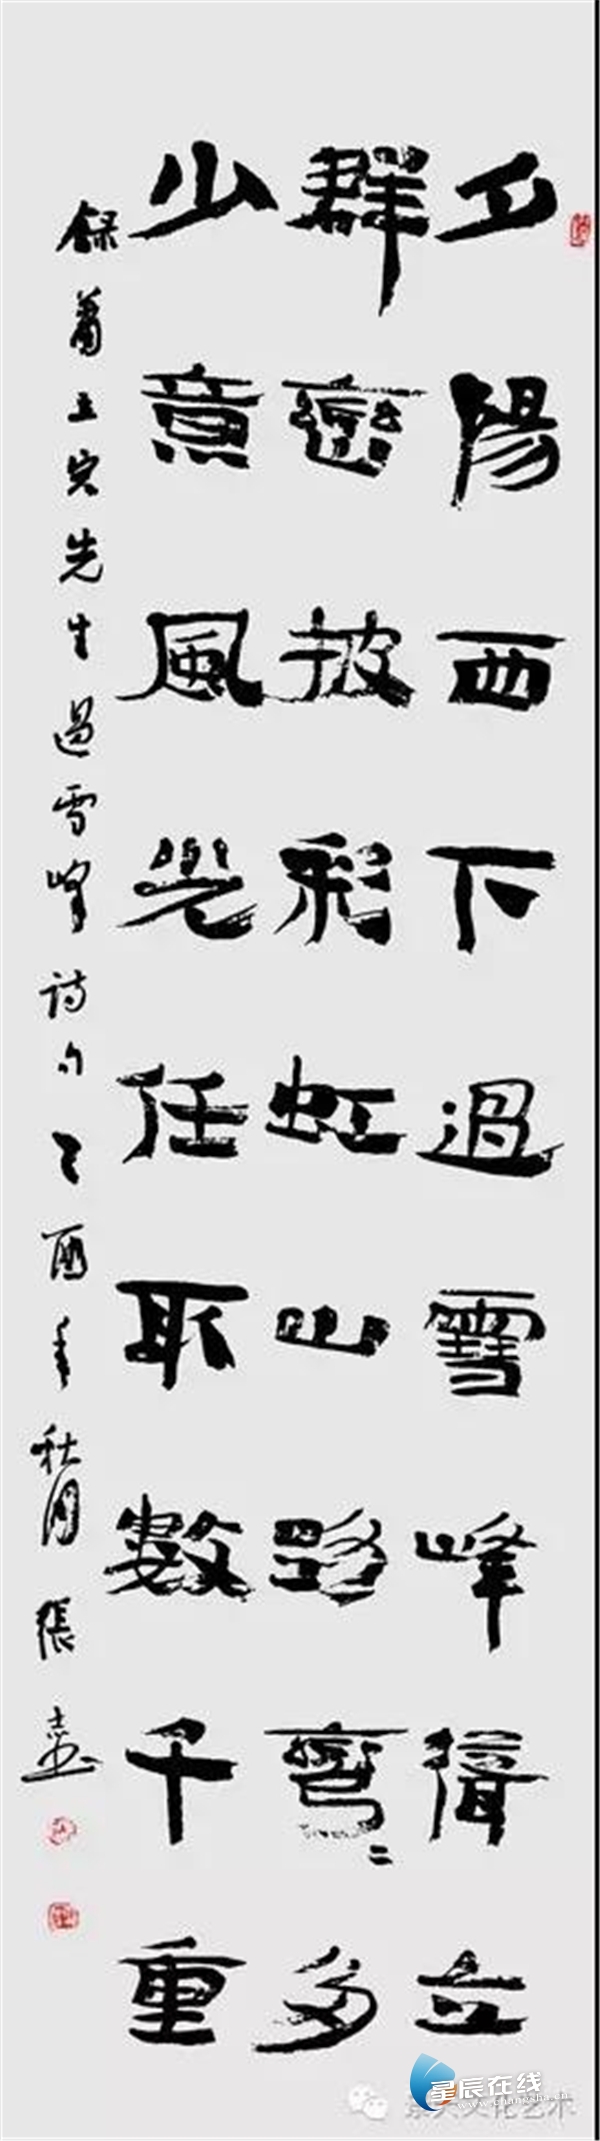 夕陽西下過雪峰立
群巒披彩虹山路彎二多
少意風光任取數千重
録蕭先生過雪峰诗句乙酉年秋月張
星辰在线
www.changsha.cn
文化艺术